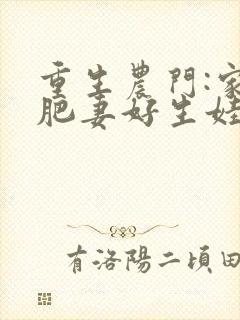 重生農門:家
肥妻好生娃
有洛陽二頃田